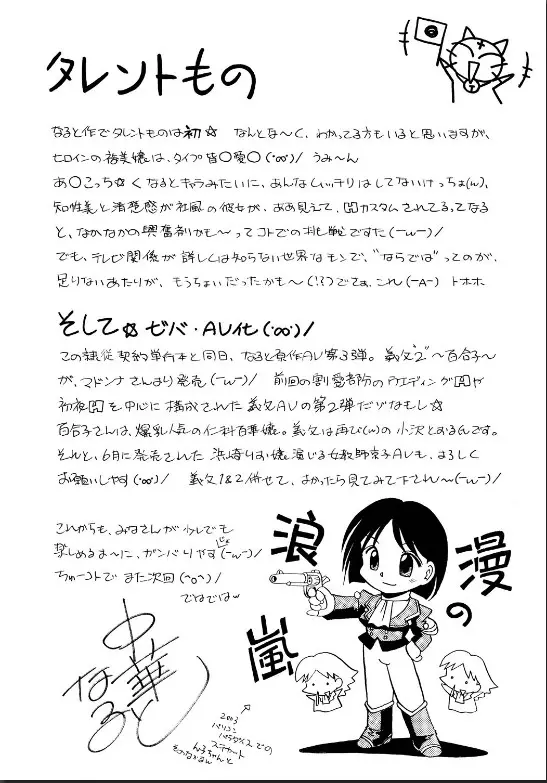 タレントもの
なると作でタレントものは初☆ なんとな〜く、わかってる方もいると思いますが、
ヒロインの裕美嬢は、タイプ皆○愛○(･∞･)/ うみ〜ん
あ○こっち☆くなるとキャラみたいに、あんなムッチリはしてないけっちょ(w)、
知性美と清楚感が社風の彼女が、ああ見えて、凹カスタムされてるってなる
と、なかなかの興奮剤かも〜ってコトでの挑戦ですた(ーωー)/
でも、テレビ関係が詳しくは知らない世界なモンで、“ならでは”ってのが、
足りないあたりが、もうちょいだったかも〜(!?)でてぁ、これ(ーAー) トホホ
そして☆ ゼバ・AV化(･∞･)/
この隷従契約単行本と同日、なると原作AV第3弾。義父“2”〜百合子〜
が、マドンナさんより発売(ーωー)/ 前回の割愛者防のウエディング凹や
初夜凹を中心に構成された義父AVの第2弾だゾなもし☆
百合子さんは、爆乳人気の仁科百華嬢。義父は再び(w)の小沢とおるんです。
それと、6月に発売された浜崎りお嬢演じる女教師京子AVも、よろしく
お願いしやす(･∞･)/ 義父1&2併せて、よかったら見てみて下され〜(ーωー)/
これからも、みなさんが少しでも
楽しめるよ〜に、ガンバりやす(ーωー)/
じょ
ちゅーコトで また次回(^o^)/
でわでわw
浪漫の嵐
中華
なると
2003